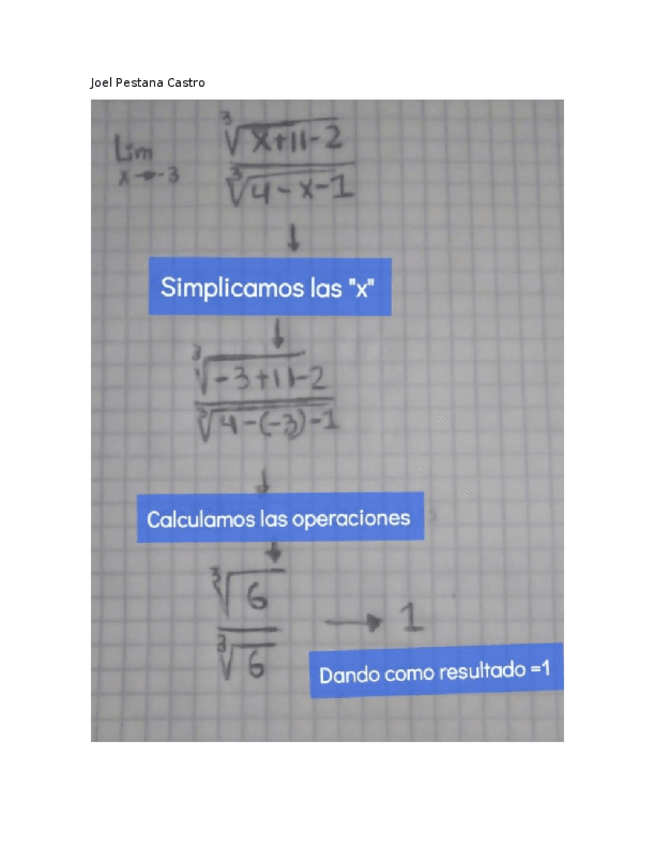 Joel Pestana Castro
Lim x→-3 ∛(x+11-2) / ∛(4-x-1)
↓
Simplicamos las "x"
↓
∛(-3+11-2) / ∛(4-(-3)-1)
↓
Calculamos las operaciones
↓
∛6 / ∛6 → 1
Dando como resultado =1